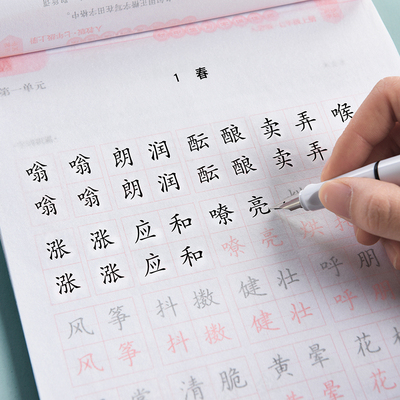 1 春
嗡 嗡 朗 润 酝 酿 卖 弄 喉
嗡 嗡 朗 润 酝 酿 卖 弄
涨 涨 应 和 嘹 亮
涨 涨 应 和 嘹 亮
风 筝 抖 擞 健 壮 呼 朋
风 筝 抖 擞 健 壮 呼
清 脆 黄 晕 花